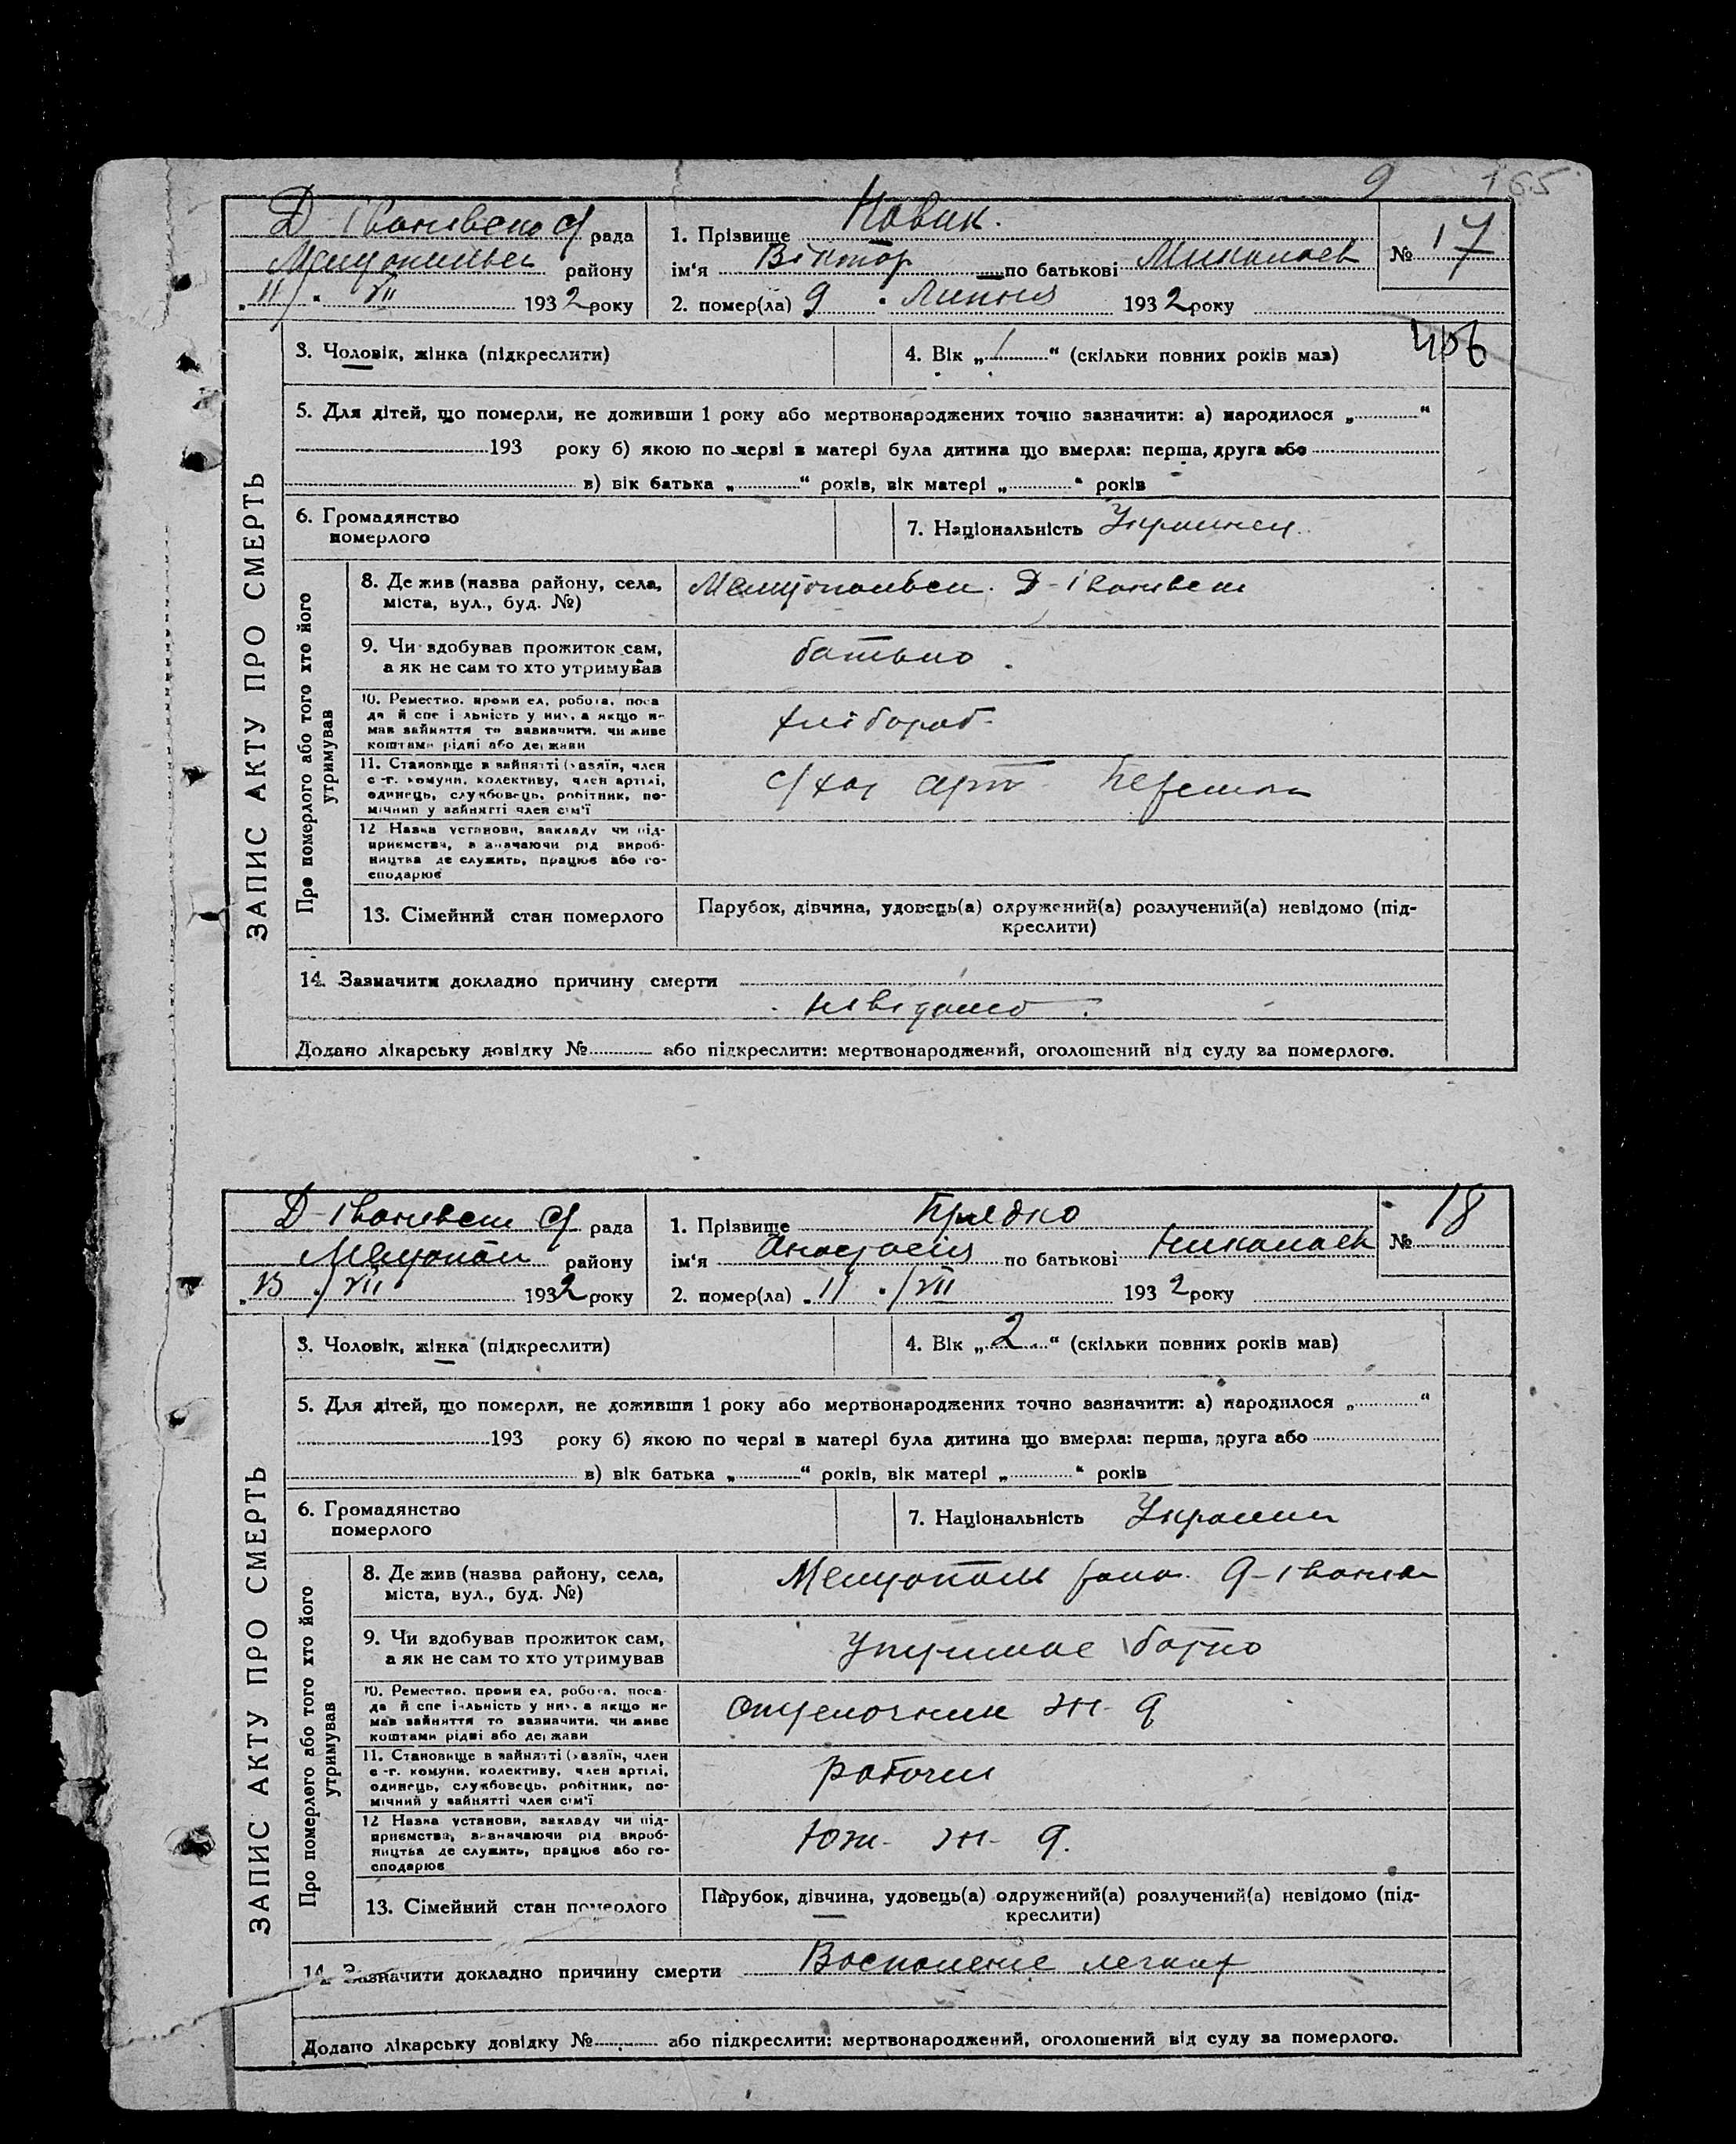 9 165
Д-Іванівськ с/ рада
Мелітопільськ району
„11/“ VII 1932 року
1. Прізвище Новик.
ім‘я Віктор по батькові Миколаєв
2. помер(ла) 9 „ Липня 1932 року
№ 17
ЗАПИС АКТУ ПРО СМЕРТЬ
3. Чоловік, жінка (підкреслити)
4. Вік „1“ (скільки повних років мав)
5. Для дітей, що померли, не доживши 1 року або мертвонароджених точно зазначити: а) народилося „ “
193 року б) якою по черзі в матері була дитина що вмерла: перша, друга або
в) вік батька „ “ років, вік матері „ “ років
6. Громадянство
померлого
7. Національність Украинец.
Про померлого або того хто його
утримував
8. Де жив (назва району, села,
міста, вул., буд. №)
Мелітопольськ. Д-Іванівськ
9. Чи здобував прожиток сам,
а як не сам то хто утримував
батько.
10. Ремество, проми ел, робота, поса
да й спе і льність у них, а якщо не
мав зайняття то зазначити, чи живе
коштами рідні або держави
хлібороб-
11. Становище в зайнятті (хазяїн, член
с-г. комуни, колективу, член артілі,
одинець, службовець, робітник, по-
мічний у зайнятті член сім‘ї
с/хоз арт
12 Назва установи, закладу чи під-
приємства, в значаючи рід вироб-
ництва де служить, працює або го-
сподарює
13. Сімейний стан померлого
Парубок, дівчина, удовець(а) одружений(а) розлучений(а) невідомо (під-
креслити)
14. Зазначити докладно причину смерти
невідомо.
Додано лікарську довідку № або підкреслити: мертвонароджений, оголошений від суду за померлого.
Д-Іванівськ с/ рада
Мелітопол району
„13 “/VII 1932 року
1. Прізвище Прядко
ім‘я Анастасія по батькові Николаєв
2. помер(ла) „11 “/VII 1932 року
№ 18
ЗАПИС АКТУ ПРО СМЕРТЬ
3. Чоловік, жінка (підкреслити)
4. Вік „2“ (скільки повних років мав)
5. Для дітей, що померли, не доживши 1 року або мертвонароджених точно зазначити: а) народилося „ “
193 року б) якою по черзі в матері була дитина що вмерла: перша, друга або
в) вік батька „ “ років, вік матері „ “ років
6. Громадянство
померлого
7. Національність Украинка
Про померлого або того хто його
утримував
8. Де жив (назва району, села,
міста, вул., буд. №)
Мелитополь район. Д-Іванівк
9. Чи здобував прожиток сам,
а як не сам то хто утримував
Утримає батько
10. Ремество, проми ел, робота, поса-
да й спе іальність у них, а якщо не
мав зайняття то зазначити, чи живе
коштами рідні або держави
стрелочник ж-д
11. Становище в зайнятті (хазяїн, член
с-г. комуни, колективу, член артілі,
одинець, службовець, робітник, по-
мічний у зайнятті член сім‘ї
рабочий
12 Назва установи, закладу чи під-
приємства, визначаючи рід вироб-
ництва де служить, працює або го-
сподарює
Юж- ж- д.
13. Сімейний стан померлого
Парубок, дівчина, удовець(а) одружений(а) розлучений(а) невідомо (під-
креслити)
14. Зазначити докладно причину смерти Воспаление легких
Додано лікарську довідку № або підкреслити: мертвонароджений, оголошений від суду за померлого.